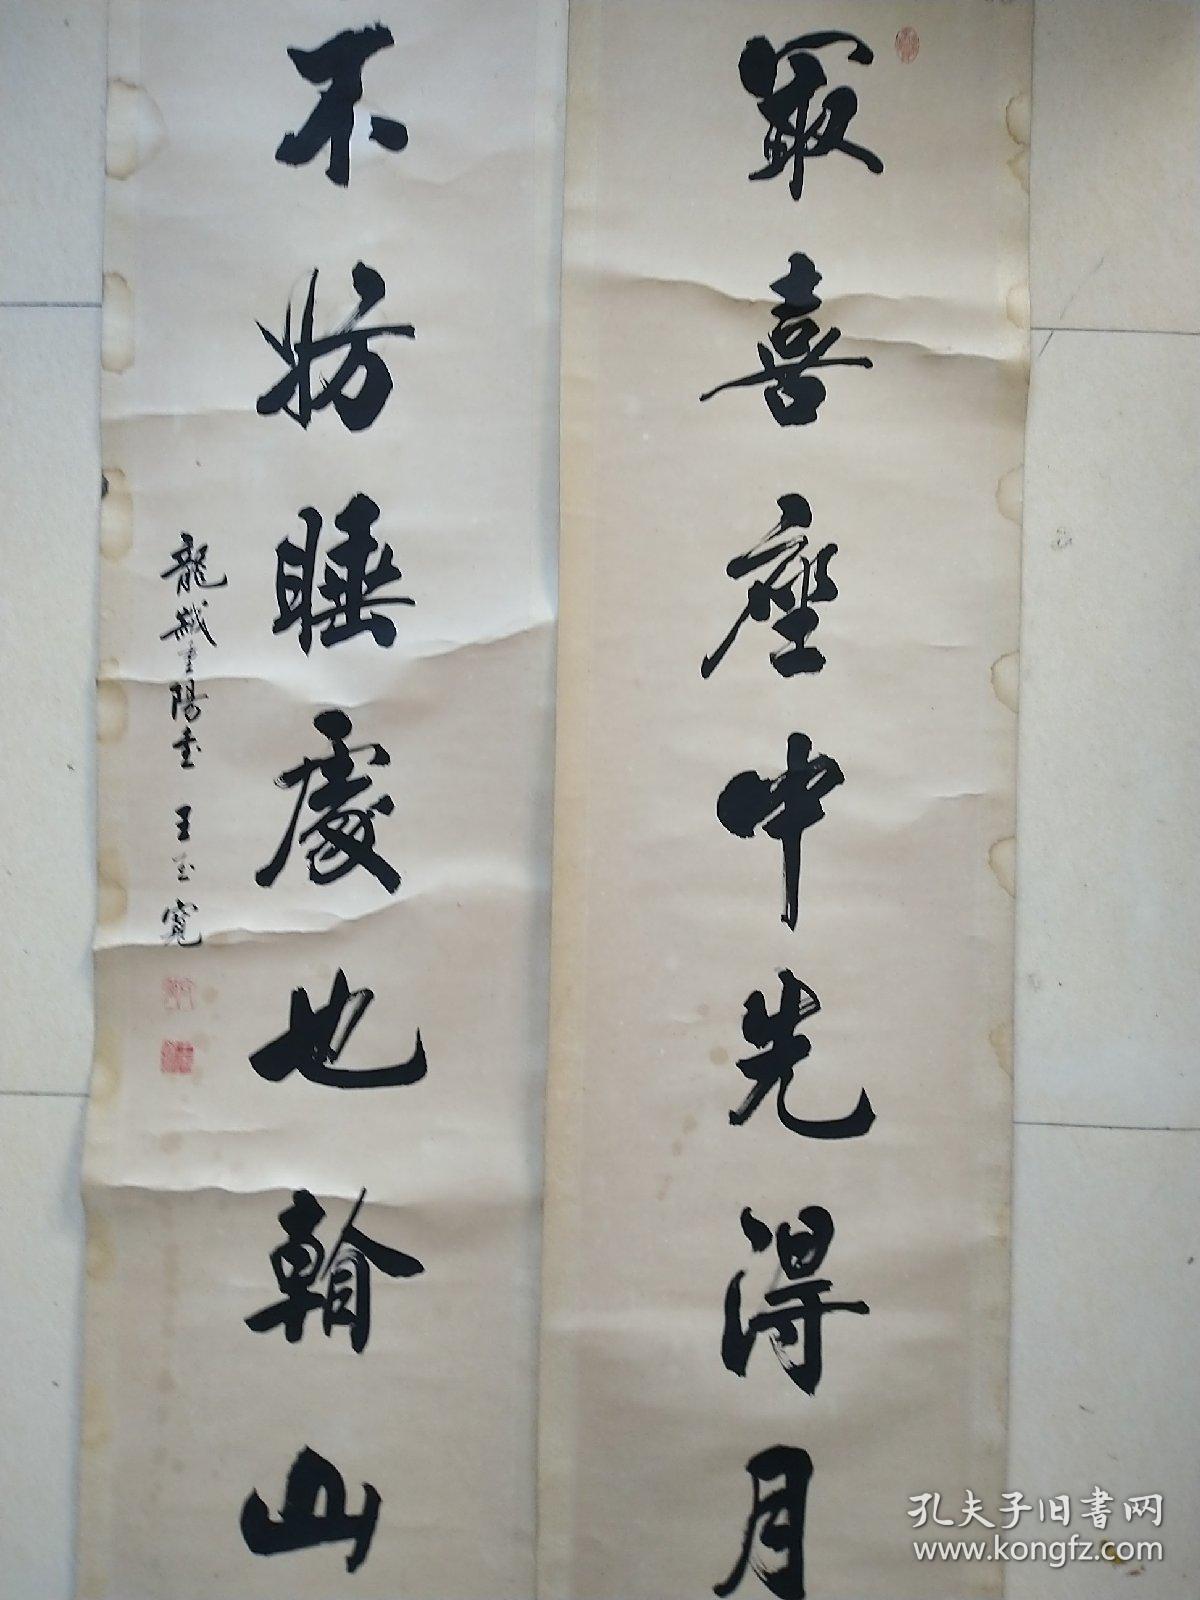 最喜座中先得月
不妨睡處也輸山
龍城重陽書 王玉寬
孔夫子旧书网
www.kongfz.com